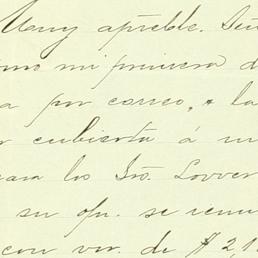 Muy apreble. Señ
omo mi primera d
a por correo, a la
r cubierta á m
para los Srs. Lovver
su ofn. se remi
con vr. de $ 2,1